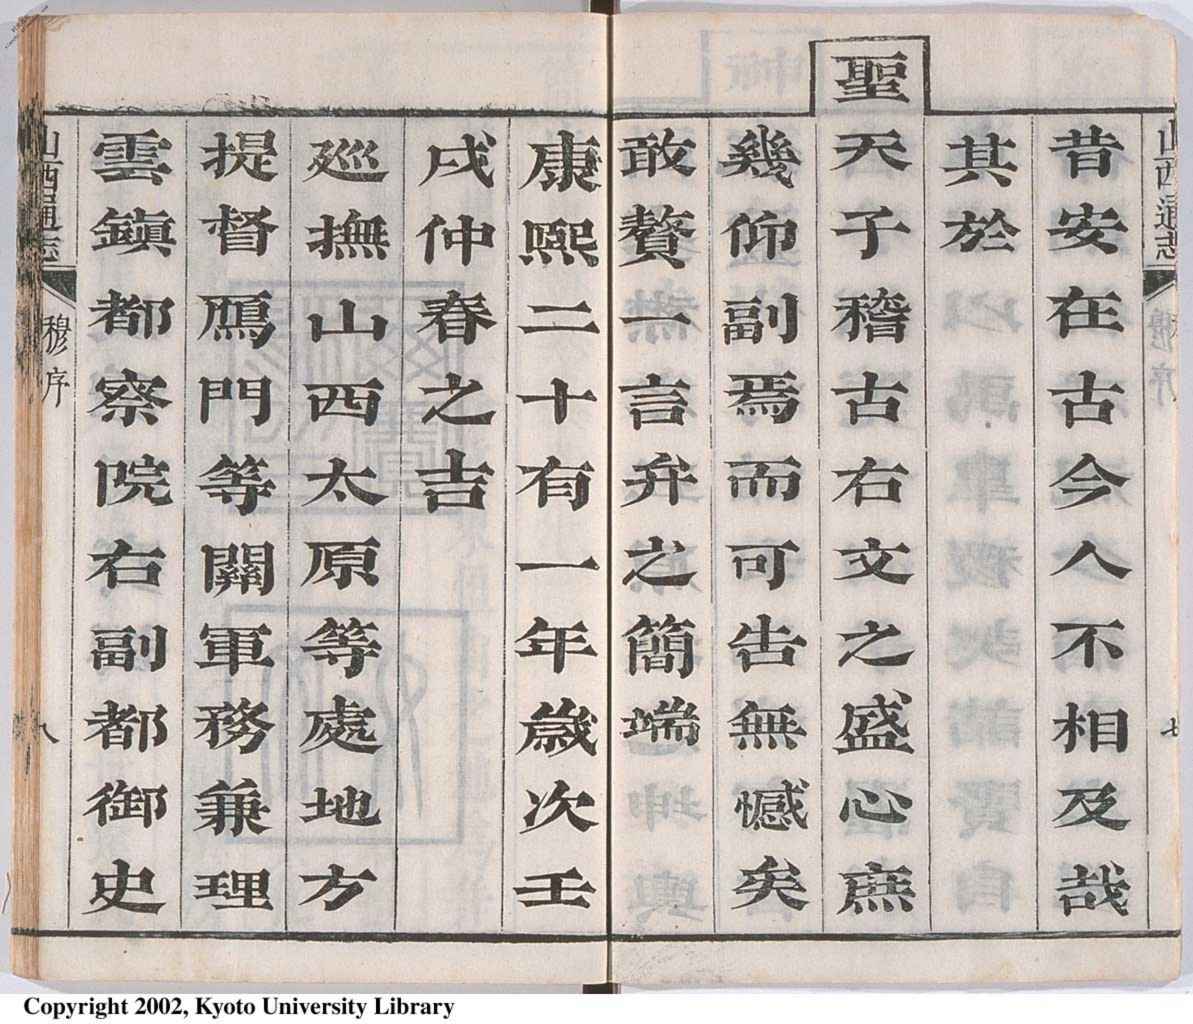 山西通志
穆序
七
昔安在古今人不相及哉
其於
聖天子稽古右文之盛心庶
幾仰副焉而可告無憾矣
敢贅一言弁之簡端
康熙二十有一年歲次壬
戌仲春之吉
巡撫山西太原等處地方
提督鴈門等關軍務兼理
雲鎮都察院右副都御史
山西通志
穆序
八
Copyright 2002, Kyoto University Library